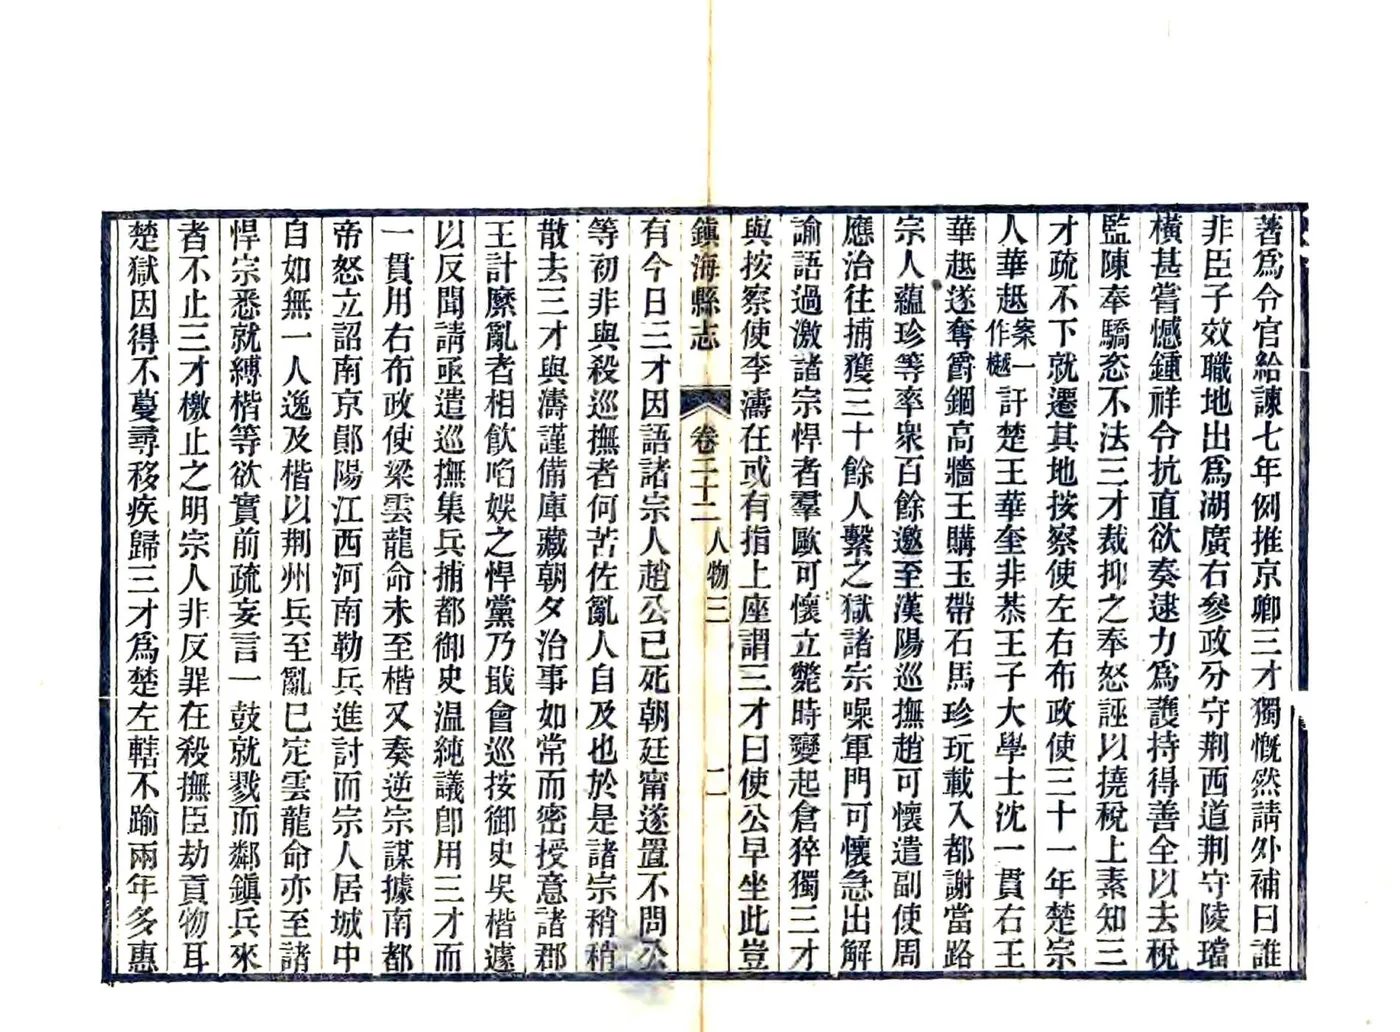 著爲令官給諫七年例推京卿三才獨慨然請外補曰誰
非臣子效職地出爲湖廣右參政分守荆西道荆守陵璫
橫甚嘗憾鍾祥令抗直欲奏逮力爲護持得善全以去稅
監陳奉驕恣不法三才裁抑之奉怒誣以撓稅上素知三
才疏不下就遷其地按察使左右布政使三十一年楚宗
人華趆案一作樾訐楚王華奎非恭王子大學士沈一貫右王
華趆遂奪爵錮高牆王購玉帶石馬珍玩載入都謝當路
宗人蘊珍等率衆百餘邀至漢陽巡撫趙可懷遣副使周
應治往捕獲三十餘人繫之獄諸宗噪軍門可懷急出解
諭語過激諸宗悍者羣歐可懷立斃時變起倉猝獨三才
與按察使李濤在或有指上座謂三才曰使公早坐此豈
鎭海縣志 卷二十二 人物三 二
有今日三才因語諸宗人趙公已死朝廷甯遂置不問公
等初非與殺巡撫者何苦佐亂人自及也於是諸宗稍稍
散去三才與濤謹備庫藏朝夕治事如常而密授意諸郡
王計縻亂者相飮啗娛之悍黨乃戢會巡按御史吳楷遽
以反聞請亟遣巡撫集兵捕都御史温純議卽用三才而
一貫用右布政使梁雲龍命未至楷又奏逆宗謀據南都
帝怒立詔南京鄖陽江西河南勒兵進討而宗人居城中
自如無一人逸及楷以荆州兵至亂已定雲龍命亦至諸
悍宗悉就縛楷等欲實前疏妄言一鼓就戮而鄰鎭兵來
者不止三才檄止之明宗人非反罪在殺撫臣劫貢物耳
楚獄因得不蔓尋移疾歸三才爲楚左轄不踰兩年多惠